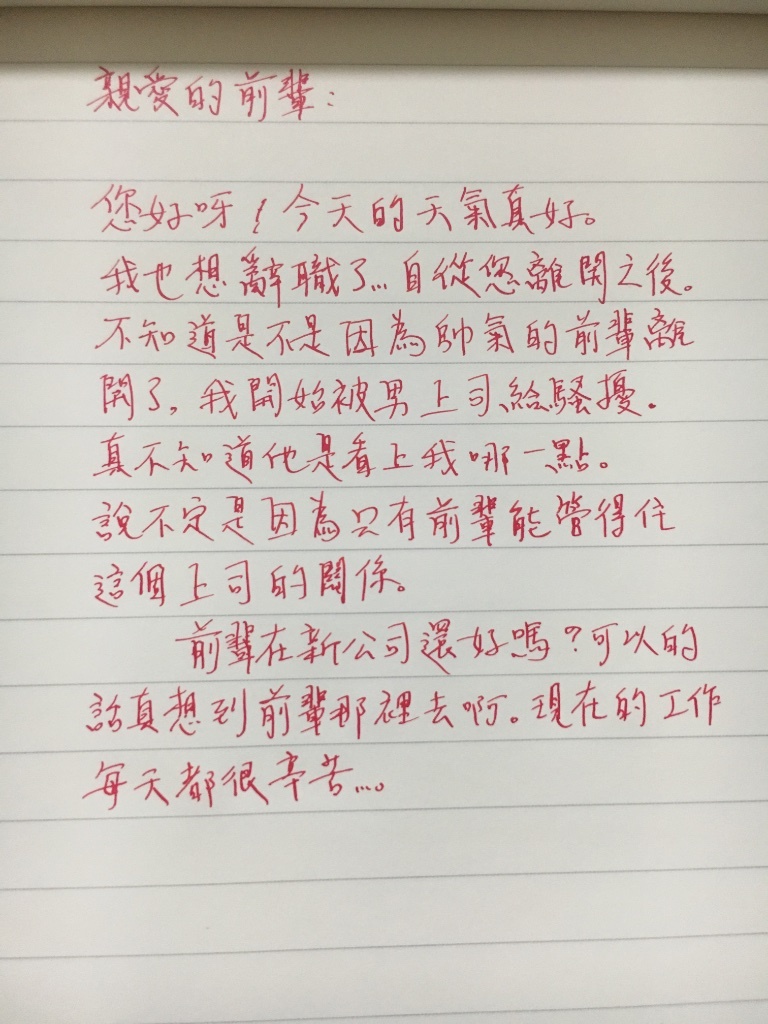 親愛的前輩：
您好呀！今天的天氣真好。
我也想辭職了...自從您離開之後。
不知道是不是因為帥氣的前輩離
開了，我開始被男上司給騷擾。
真不知道他是看上我哪一點。
說不定是因為只有前輩能管得住
這個上司的關係。
前輩在新公司還好嗎？可以的
話真想到前輩那裡去啊。現在的工作
每天都很辛苦...。